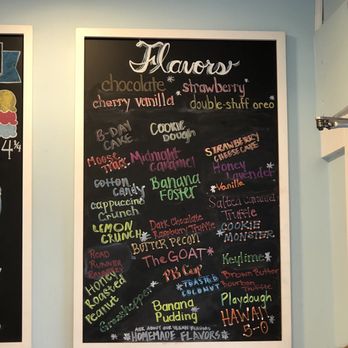 Flavors
chocolate * strawberry
cherry vanilla * double-stuff oreo
B-DAY CAKE
COOKIE DOUGH
STRAWBERRY CHEESECAKE
MOOSE TRAX
Midnight caramel
Honey Lavender
COTTON CANDY
Banana Foster
Vanilla
cappuccino Crunch
Salted Caramel Truffle
LEMON CRUNCH
Dark Chocolate Raspberry Truffle
COOKIE MONSTER
BUTTER PECAN
ROAD RUNNER
The GOAT
Keylime
Honey Roasted Peanut
PB Cup
Brown Butter Bourbon Truffle
TOASTED COCONUT
Grasshopper
Playdough
Banana Pudding
HAWAII 5-0
ASK ABOUT OUR VEGAN
HOMEMADE FLAVORS
4